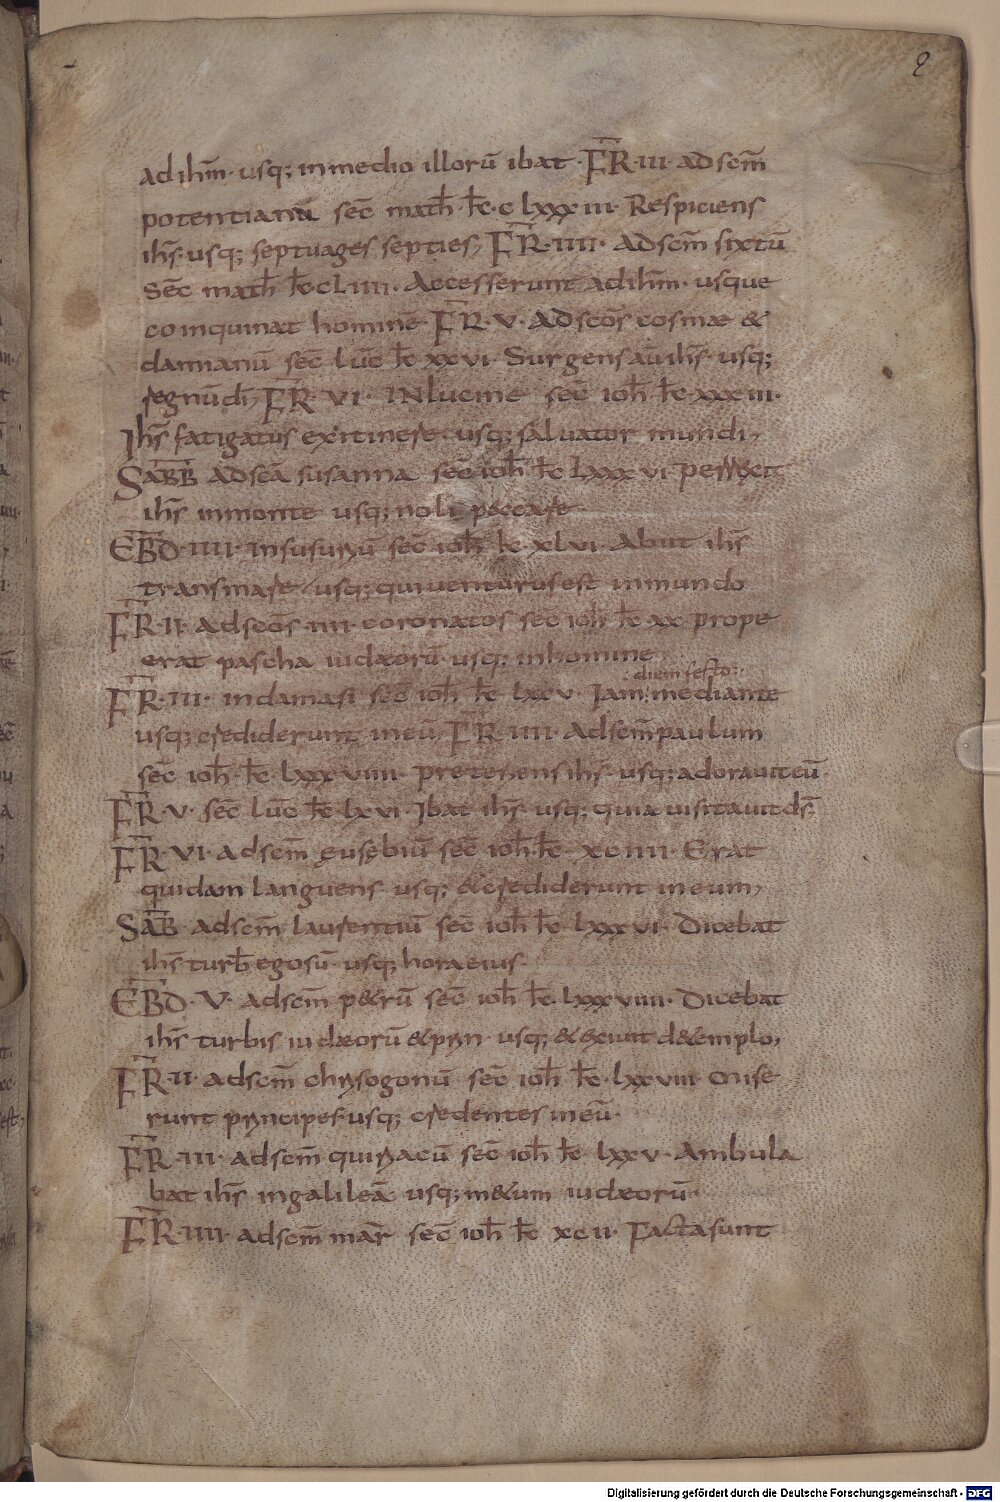 2
ad ihm̄· usq; in medio illorū ibat· FR̄·III· ad scm̄
potentianā sec̄ math̄· k̄c·clxxxiii· Respiciens
ihs̄· usq; septuages septies, FR̄·IIII· ad scm̄ sixtū
sec̄ math̄ k̄c cliiii· Accesserunt ad ihm̄· usque
coinquinat hominē FR̄·V· ad scōs cosmæ &
damianū sec̄ lūc k̄c xxvi· Surgens aū ihs̄· usq;
regnū dī, FR̄·VI· IN lucine sec̄ ioh̄ k̄c·xxxiii·
Ihs̄ fatigatus ex itinere usq; saluator mundi,
SABB̄ ad scā susanna sec̄ ioh̄ k̄c lxxxvi· perrexit
ihs̄ in monte usq; noli peccare
EBD̄·IIII· in susurriū sec̄ ioh̄ k̄c·xlvi· Abiit ihs̄
transmare usq; qui uenturus est in mundo
FR̄·II· ad scōs IIII· coronatos sec̄ ioh̄ k̄c xx prope
erat pascha iudæorū· usq; in homine,
:diem festo:
FR̄·III· in damasi sec̄ ioh̄ k̄c lxxv· Iam mediante
usq; crediderunt in eū, FR̄·IIII· ad scm̄ paulum
sec̄ ioh̄· k̄c· lxxxviiii· preteriens ihs̄· usq; adorauit eū·
FR̄·V· sec̄ lūc k̄c lxvi· Ibat ihs̄· usq; quia uisitauit ds̄
FR̄·VI· ad scm̄ eusebiū sec̄ ioh̄· k̄c xciiii· Erat
quidam languens· usq; & crediderunt in eum,
SAB̄ ad scm̄ laurentiū sec̄ ioh̄ k̄c lxxxvi· Dicebat
ihs̄ turb̄ ego sū· usq; hora eius·
EBD̄·V· ad scm̄ p&rū sec̄ ioh̄ k̄c· lxxxviiii· Dicebat
ihs̄ turbis iudæorū & prin· usq; & exiuit de templo,
FR̄·II· ad scm̄ chrysogonū sec̄ ioh̄ k̄c· lxxviii Mise
runt principes· usq; credentes in eū·
FR̄·III· ad scm̄ quiriacū sec̄ ioh̄ k̄c lxxv· Ambula
bat ihs̄ in galileā usq; m&um iudæorū·
FR̄·IIII· ad scm̄ mar̄ sec̄ ioh̄ k̄c xcii· Facta sunt
Digitalisierung gefördert durch die Deutsche Forschungsgemeinschaft - DFG